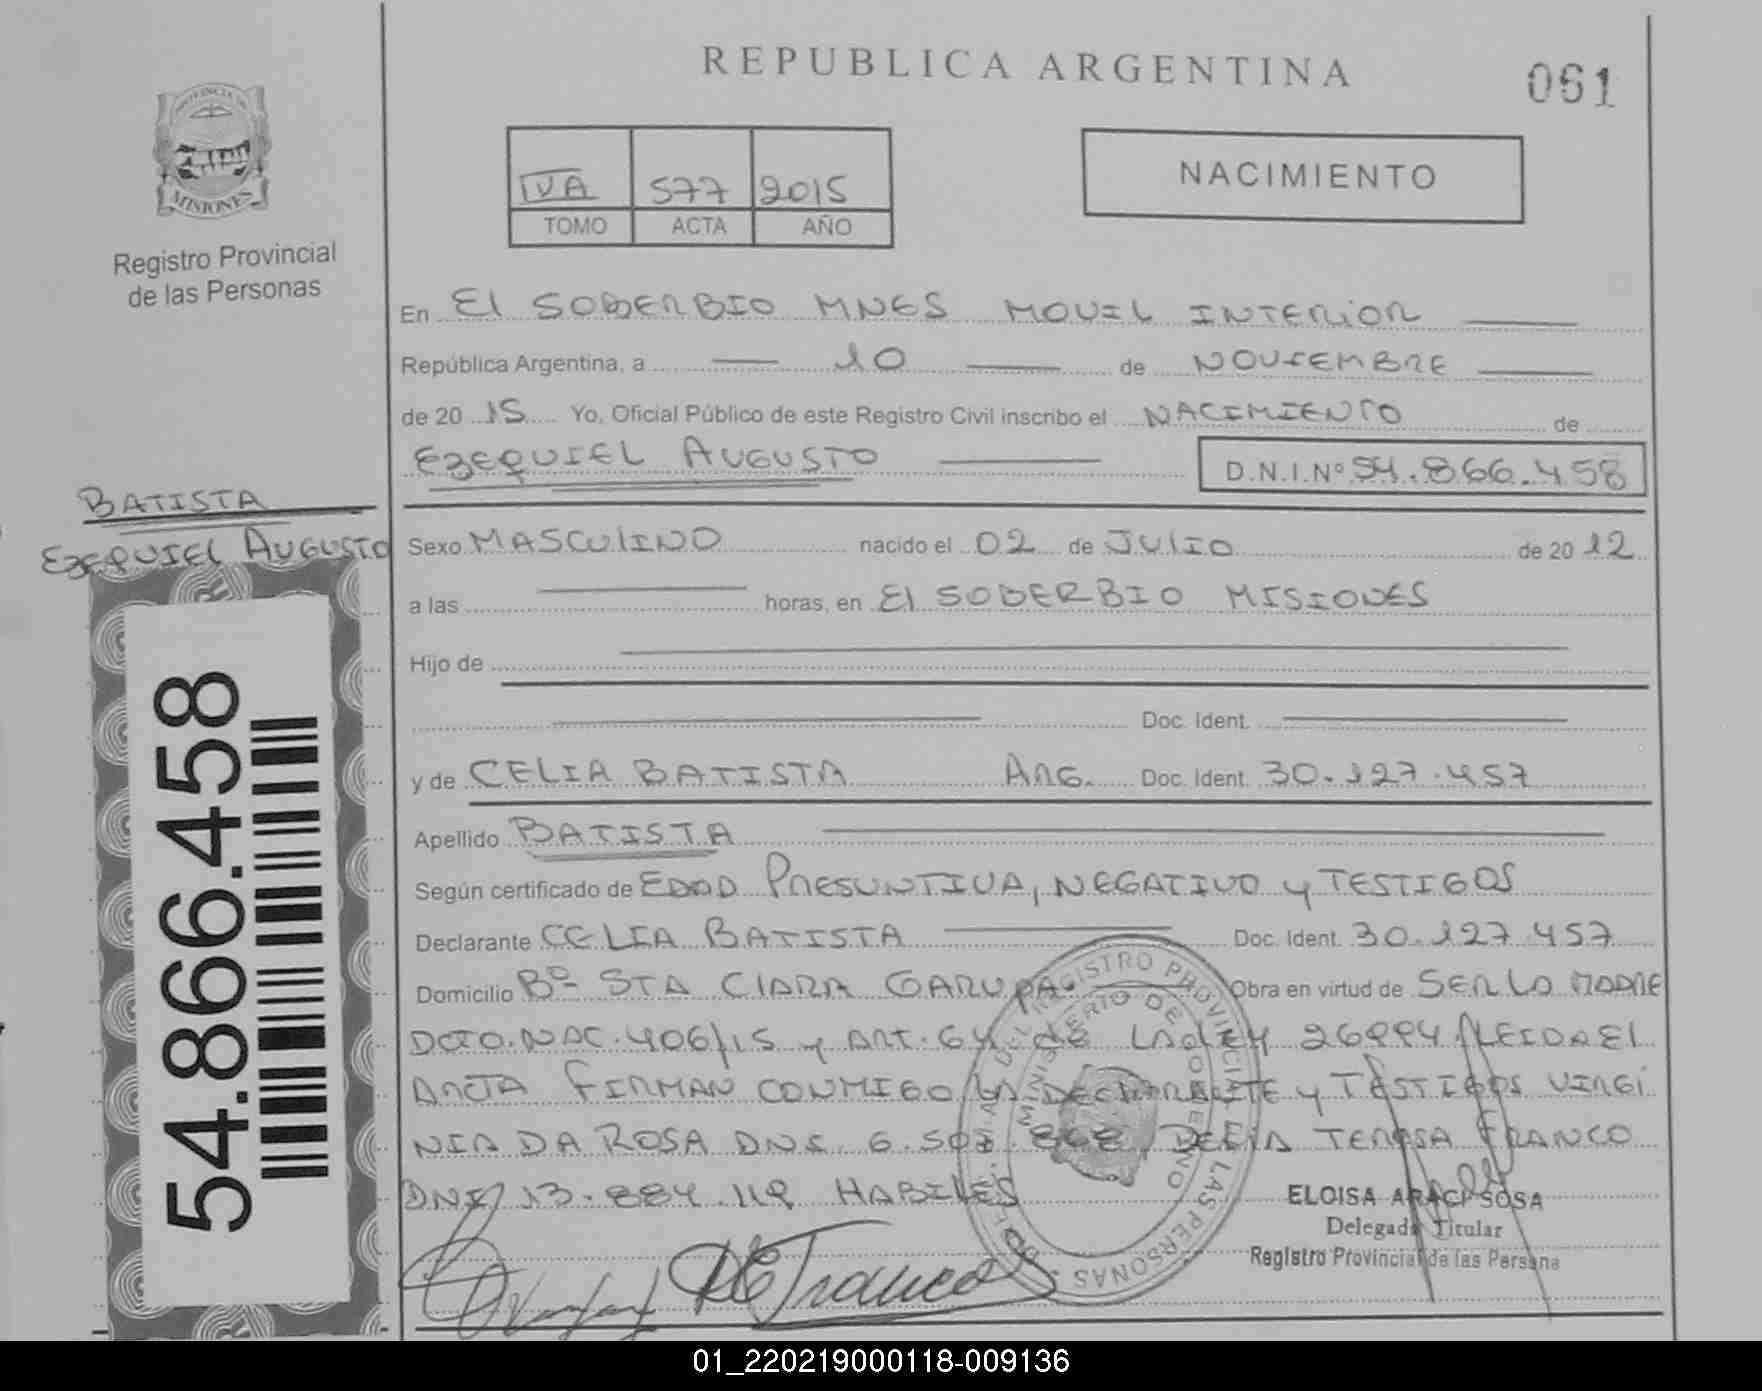 REPUBLICA ARGENTINA
061
PROVINCIA DE
MISIONES
Registro Provincial
de las Personas
IVA 577 2015
TOMO ACTA AÑO
NACIMIENTO
En El SOBERBIO MNES MOVIL INTERIOR
República Argentina, a 10 de NOVIEMBRE
de 20 15 Yo, Oficial Público de este Registro Civil inscribo el NACIMIENTO de
EZEQUIEL AUGUSTO D.N.I.Nº 54.866.458
BATISTA
EZEQUIEL AUGUSTO
54.866.458
Sexo MASCULINO nacido el 02 de JULIO de 20 12
a las horas, en El SOBERBIO MISIONES
Hijo de
Doc. Ident.
y de CELIA BATISTA ARG. Doc. Ident. 30.127.457
Apellido BATISTA
Según certificado de EDAD PRESUNTIVA, NEGATIVO y TESTIGOS
Declarante CELIA BATISTA Doc. Ident. 30.127.457
Domicilio Bº STA CLARA GARUPA Obra en virtud de SER LA MADRE
DCTO.NAC.406/15 y ART. 64 de LA LEY 26994 LEIDA EL
ACTA FIRMAN CONMIGO LA DECLARANTE y TESTIGOS VIRGI
NIA DA ROSA DNI DELIA TERESA FRANCO
DNI 13.884.119 HABILES
ELOISA ARACI SOSA
Delegada Titular
Registro Provincial de las Persona
01_220219000118-009136